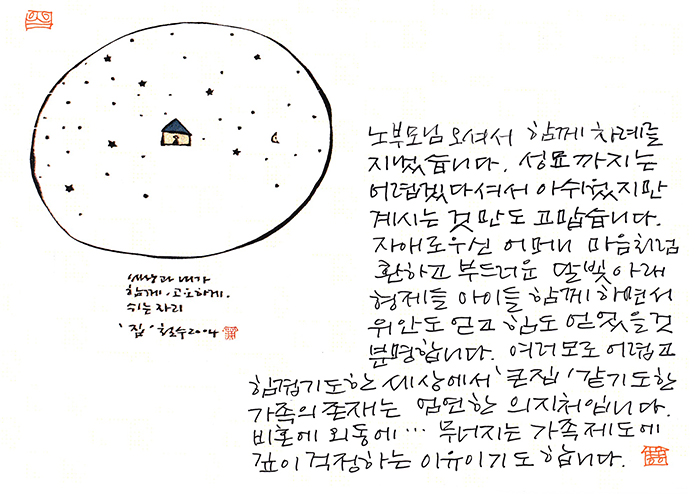 세상과 내가
함께. 고요하게.
쉬는 자리
'집' 철수 2004
노부모님 오셔서 함께 차례를
지냈습니다. 성묘까지는
어렵겠다셔서 아쉬웠지만
계시는 것만도 고맙습니다.
자애로우신 어머니 마음처럼
환하고 부드러운 달빛 아래
형제들 아이들 함께 하면서
위안도 얻고 힘도 얻었을 것
분명합니다. 여러모로 어렵고
힘겹기도 한 세상에서 '큰집' 같기도 한
가족의 존재는 엄연한 의지처입니다.
비혼에 외동에··· 무너지는 가족제도에
깊이 걱정하는 이유이기도 합니다.